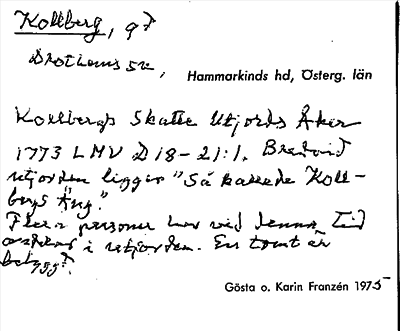 Kollberg, g?
Drothems sn,
Hammarkinds hd, Österg. län
Kollbergs Skatte Utjords Åker
1773 LMV D 18-21:1. Bredvid
utjorden ligger "Så kallade Koll-
bergs Äng."
Flera personer har vid denna tid
i utjorden. En tomt är
Gösta o. Karin Franzén 1975